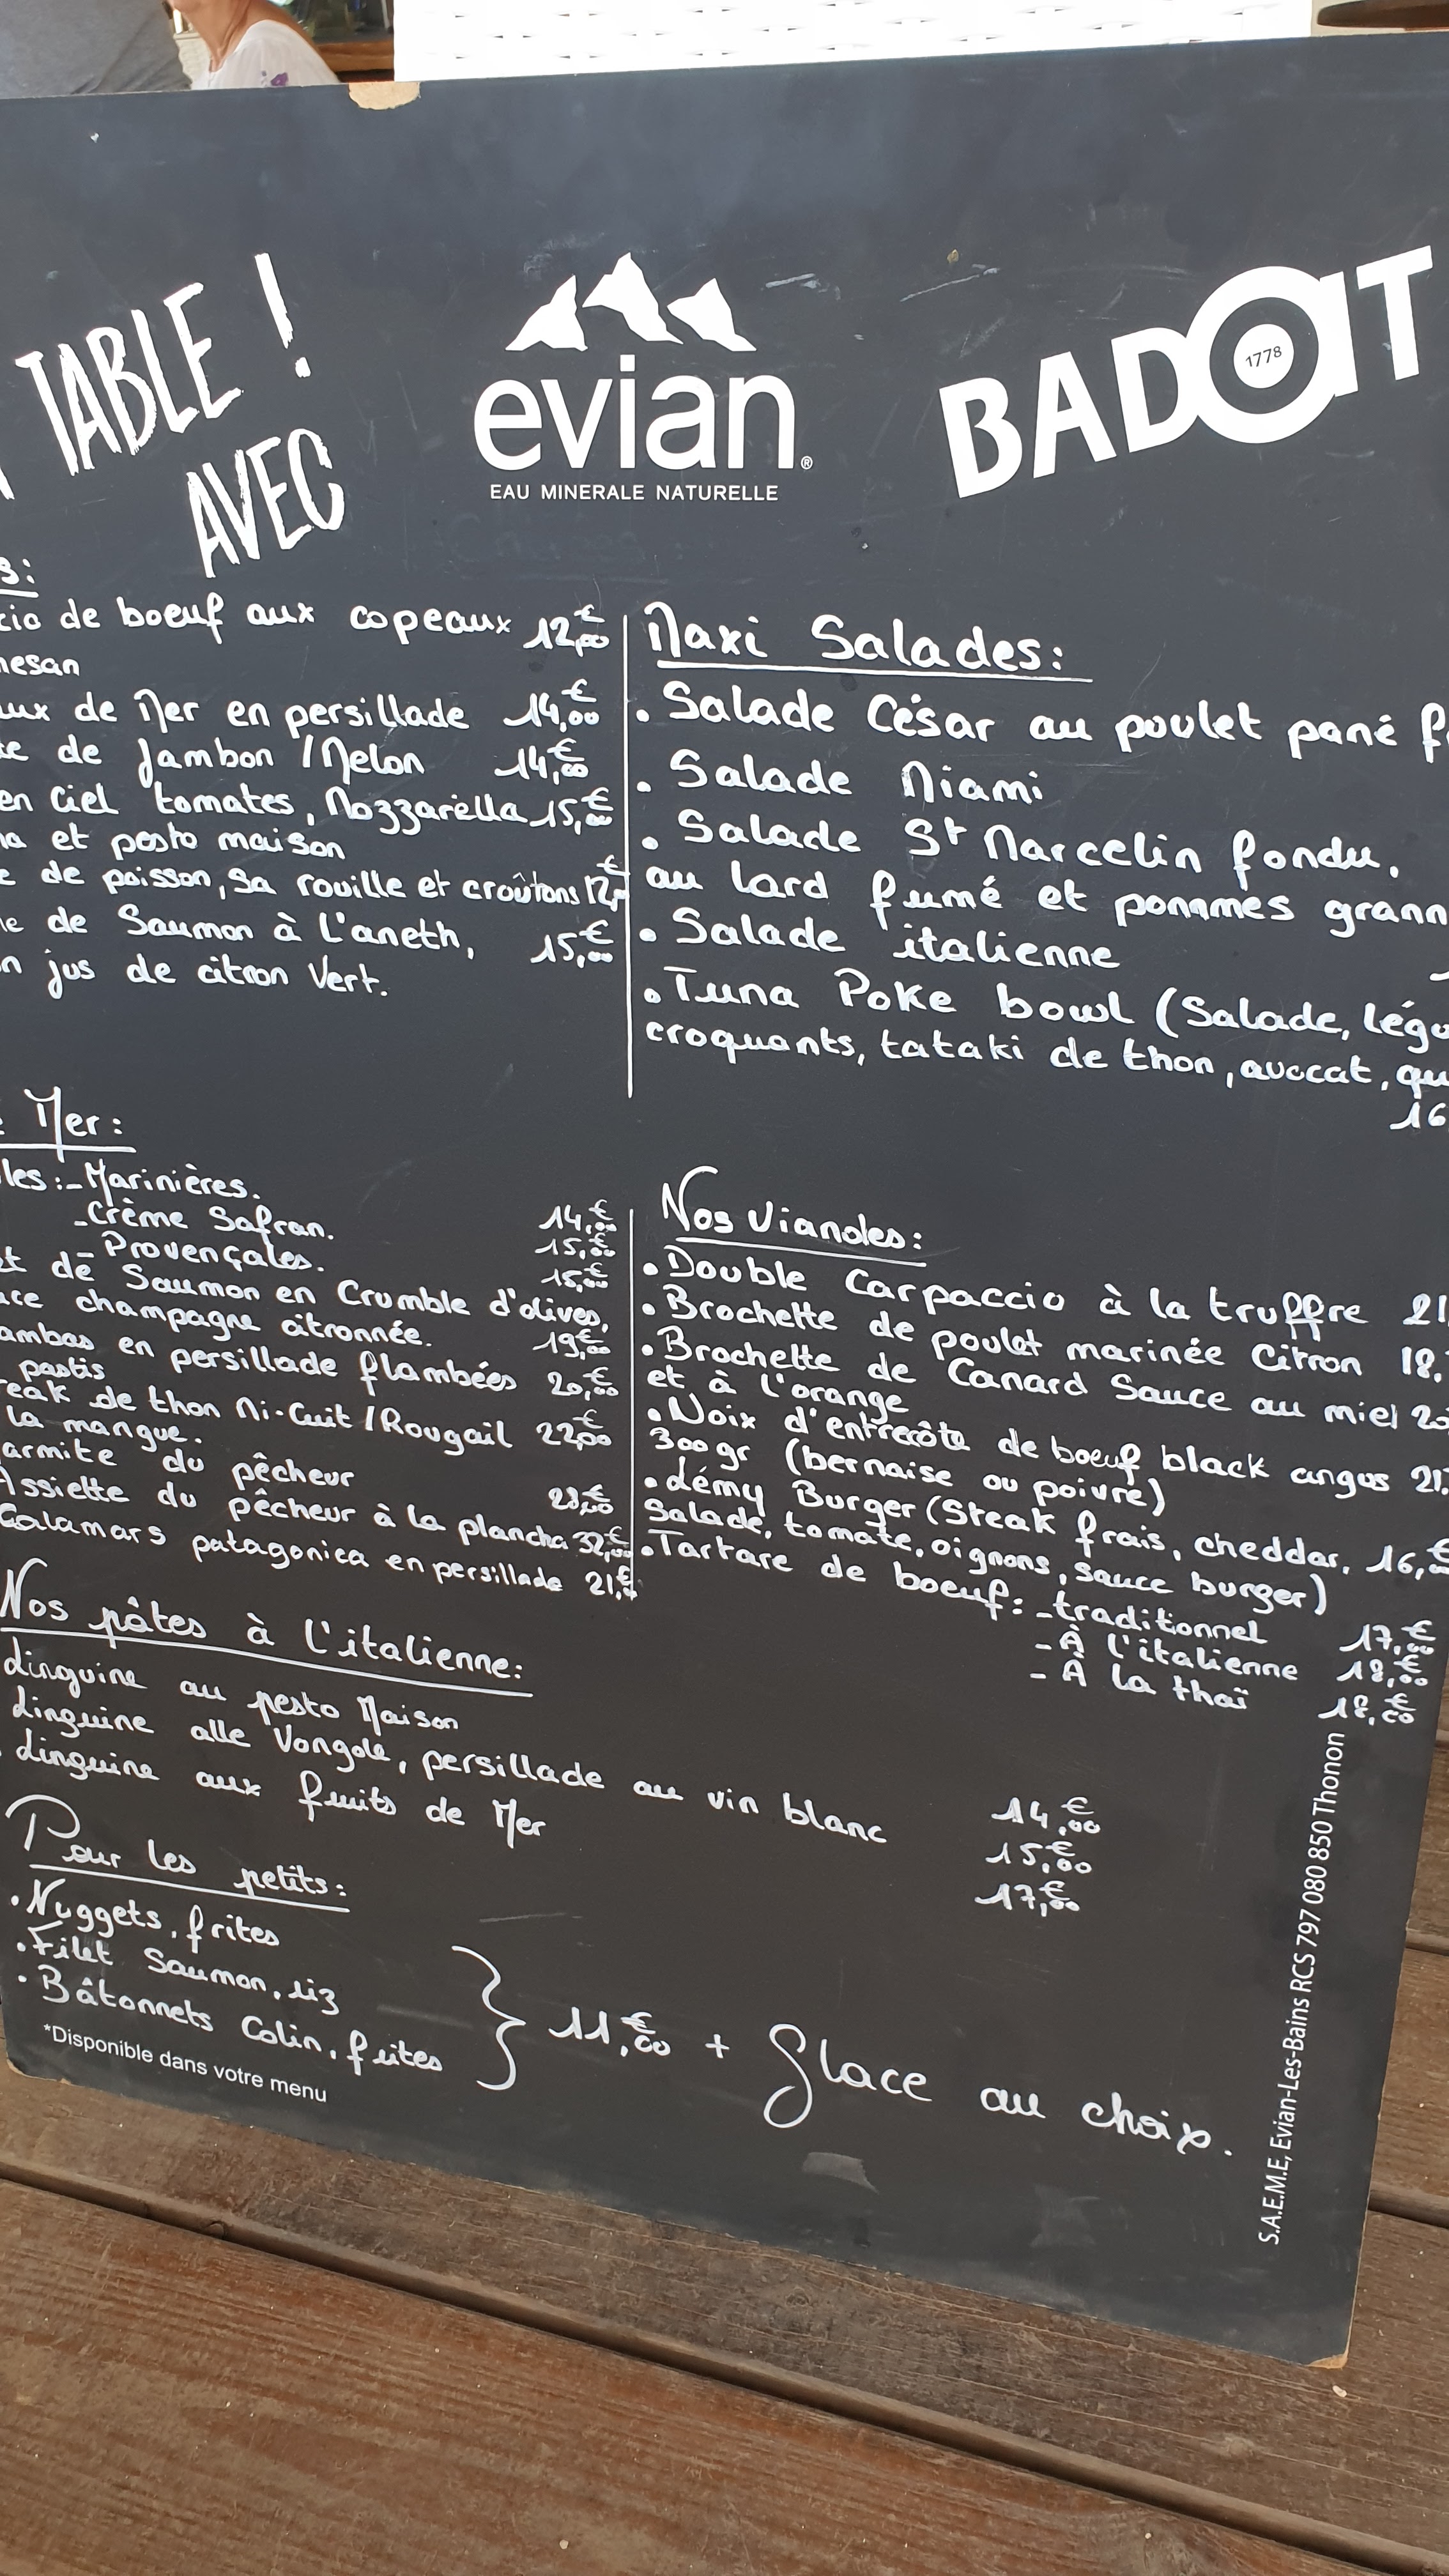 TABLE !
AVEC
evian®
EAU MINERALE NATURELLE
BADOIT
1778
s:
cio de boeuf aux copeaux 12,00€
mesan
ux de Mer en persillade 14,00€
te de Jambon / Melon 14,00€
en ciel tomates, Mozzarella 15,00€
na et pesto maison
e de poisson, sa rouille et croûtons 12,€
ne de Saumon à l'aneth, 15,00€
n jus de citron Vert.
Maxi Salades:
• Salade César au poulet pané f
• Salade Miami
• Salade St Marcelin fondu,
au lard fumé et pommes grann
• Salade italienne
• Tuna Poke bowl (Salade, légu
croquants, tataki de thon, avocat, qu
16
e Mer:
les: - Marinières. 14,00€
- Crème Safran. 15,00€
- Provençales. 15,00€
t de Saumon en Crumble d'olives,
uce champagne citronnée. 19,00€
ambas en persillade flambées 20,00€
pastis
eak de thon Mi-Cuit / Rougail 22,00€
la mangue.
armite du pêcheur 28,00€
Assiette du pêcheur à la plancha 32,00€
Calamars patagonica en persillade 21,€
Nos Viandes:
• Double Carpaccio à la truffre 21,
• Brochette de poulet marinée Citron 18,
• Brochette de Canard Sauce au miel 20
et à l'orange
• Noix d'entrecôte de boeuf black angus 21,
300gr (bernaise ou poivre)
• Lémy Burger (Steak frais, cheddar, 16,€
Salade, tomate, oignons, sauce burger)
• Tartare de boeuf: - traditionnel 17,00€
- À l'italienne 18,00€
- À la thaï 18,00€
Nos pâtes à l'italienne:
Linguine au pesto Maison 14,00€
Linguine alle Vongole, persillade au vin blanc 15,00€
Linguine aux fruits de Mer 17,00€
Pour les petits:
• Nuggets, frites
• Filet Saumon, riz
• Bâtonnets Colin, frites
} 11,00€ + Glace au choix.
*Disponible dans votre menu
S.A.E.M.E, Evian-Les-Bains RCS 797 080 850 Thonon